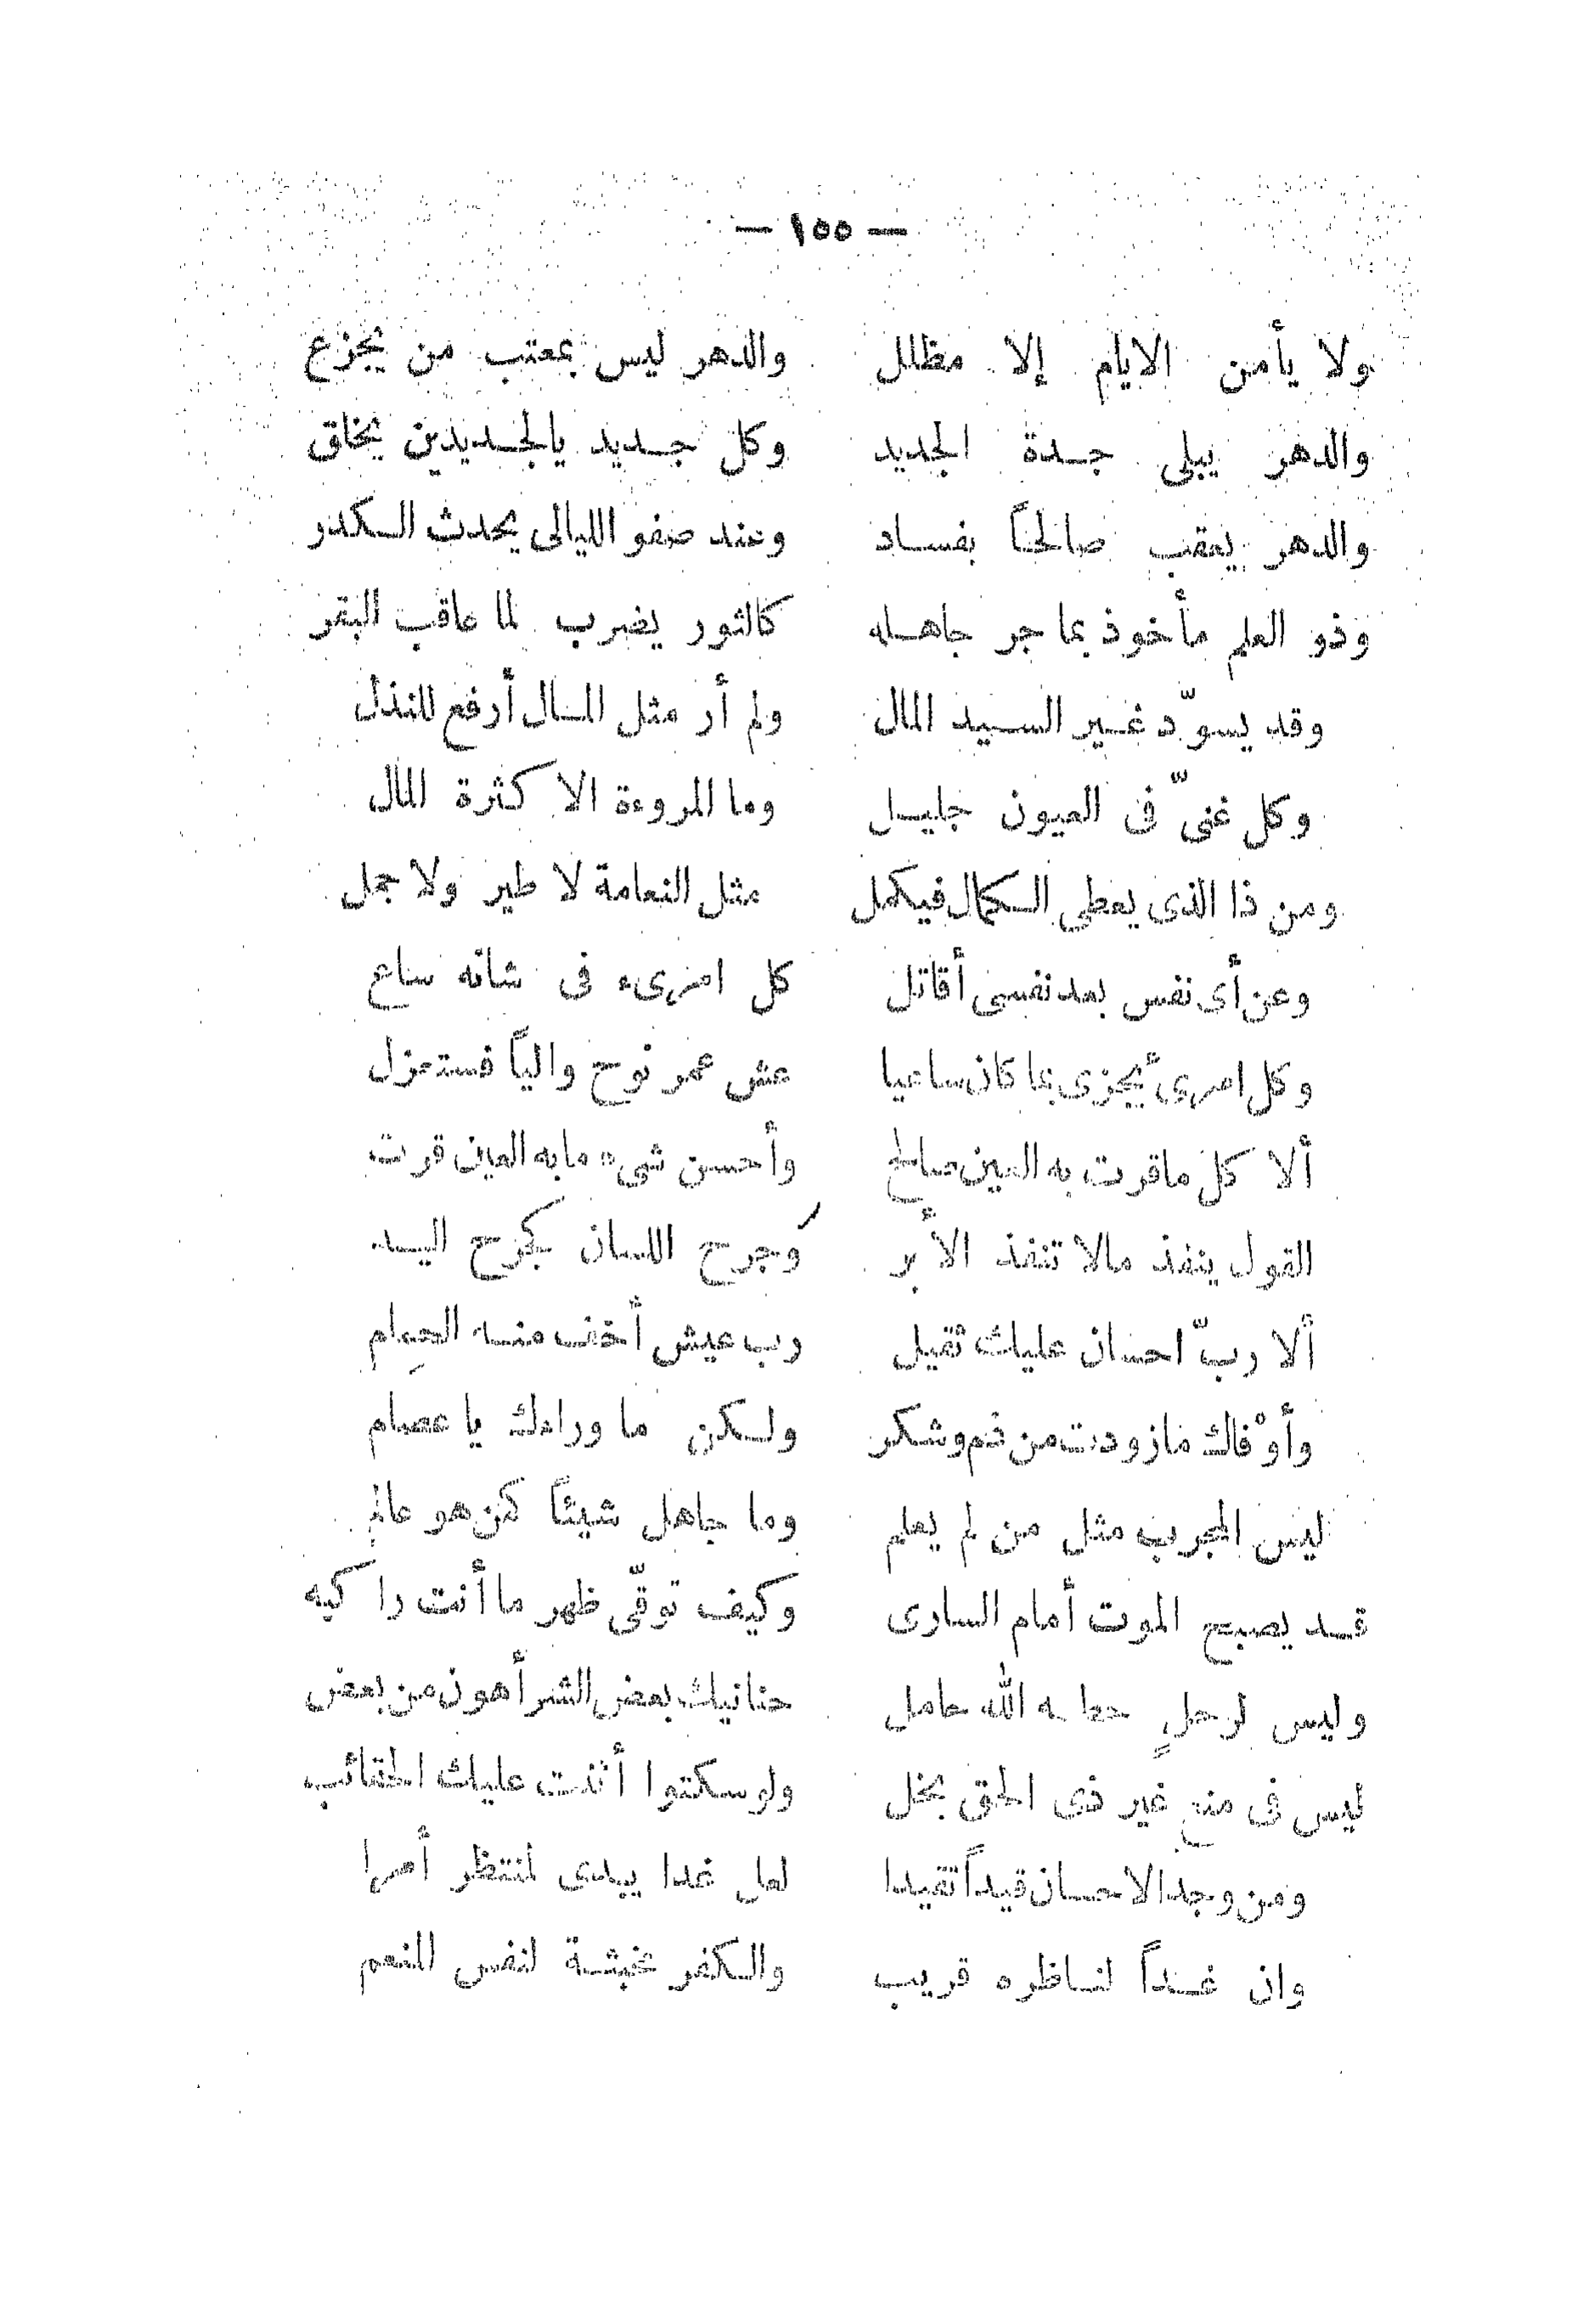 — ١٥٥ —
ولا يأمن الايام إلا مظلل والدهر ليس بمعتب من يجزع
والدهر يبلى جدة الجديد وكل جديد يالجديدين يخلق
والدهر يعقب صالحاً بفساد وعند صفو الليالى يحدث الكدر
وذو العلم مأخوذ بما جر جاهله كالثور يضرب لما عاقب البقر
وقد يسوّد غير السيد المال ولم أر مثل المال أرفع للنذل
وكل غنىّ فى العيون جليل وما المروءة الا كثرة المال
ومن ذا الذى يعطى الكمال فيكمل مثل النعامة لا طير ولا جمل
وعن أى نفس بعد نفسى أقاتل كل امرىء فى شانه ساع
وكل امرىء يجزى بما كان ساعيا عش عمر نوح والياً فستعزل
ألا كل ماقرت به العين صالح وأحسن شىء مابه العين قرت
القول ينفذ مالا تنفذ الأبر وجرح اللسان كجرح اليد
ألا ربّ احسان عليك ثقيل رب عيش أخف منه الحِمام
وأوْفاك مازودت من ذم وشكر ولكن ما وراءك يا عصام
ليس المجرب مثل من لم يعلم وما جاهل شيئاً كمن هو عالم
قد يصبح الموت أمام السارى وكيف توقّى ظهر ما أنت راكبه
وليس لرحلٍ حطه الله حامل حنانيك بعض الشر أهون من بعض
ليس فى منعِ غير ذى الحق بخل ولو سكتوا أثنت عليك الحقائب
ومن وجد الاحسان قيداً تقيدا لعل غدا يبدى لمنتظر أمرا
وان غداً لناظره قريب والكفر مخبثة لنفس المنعم